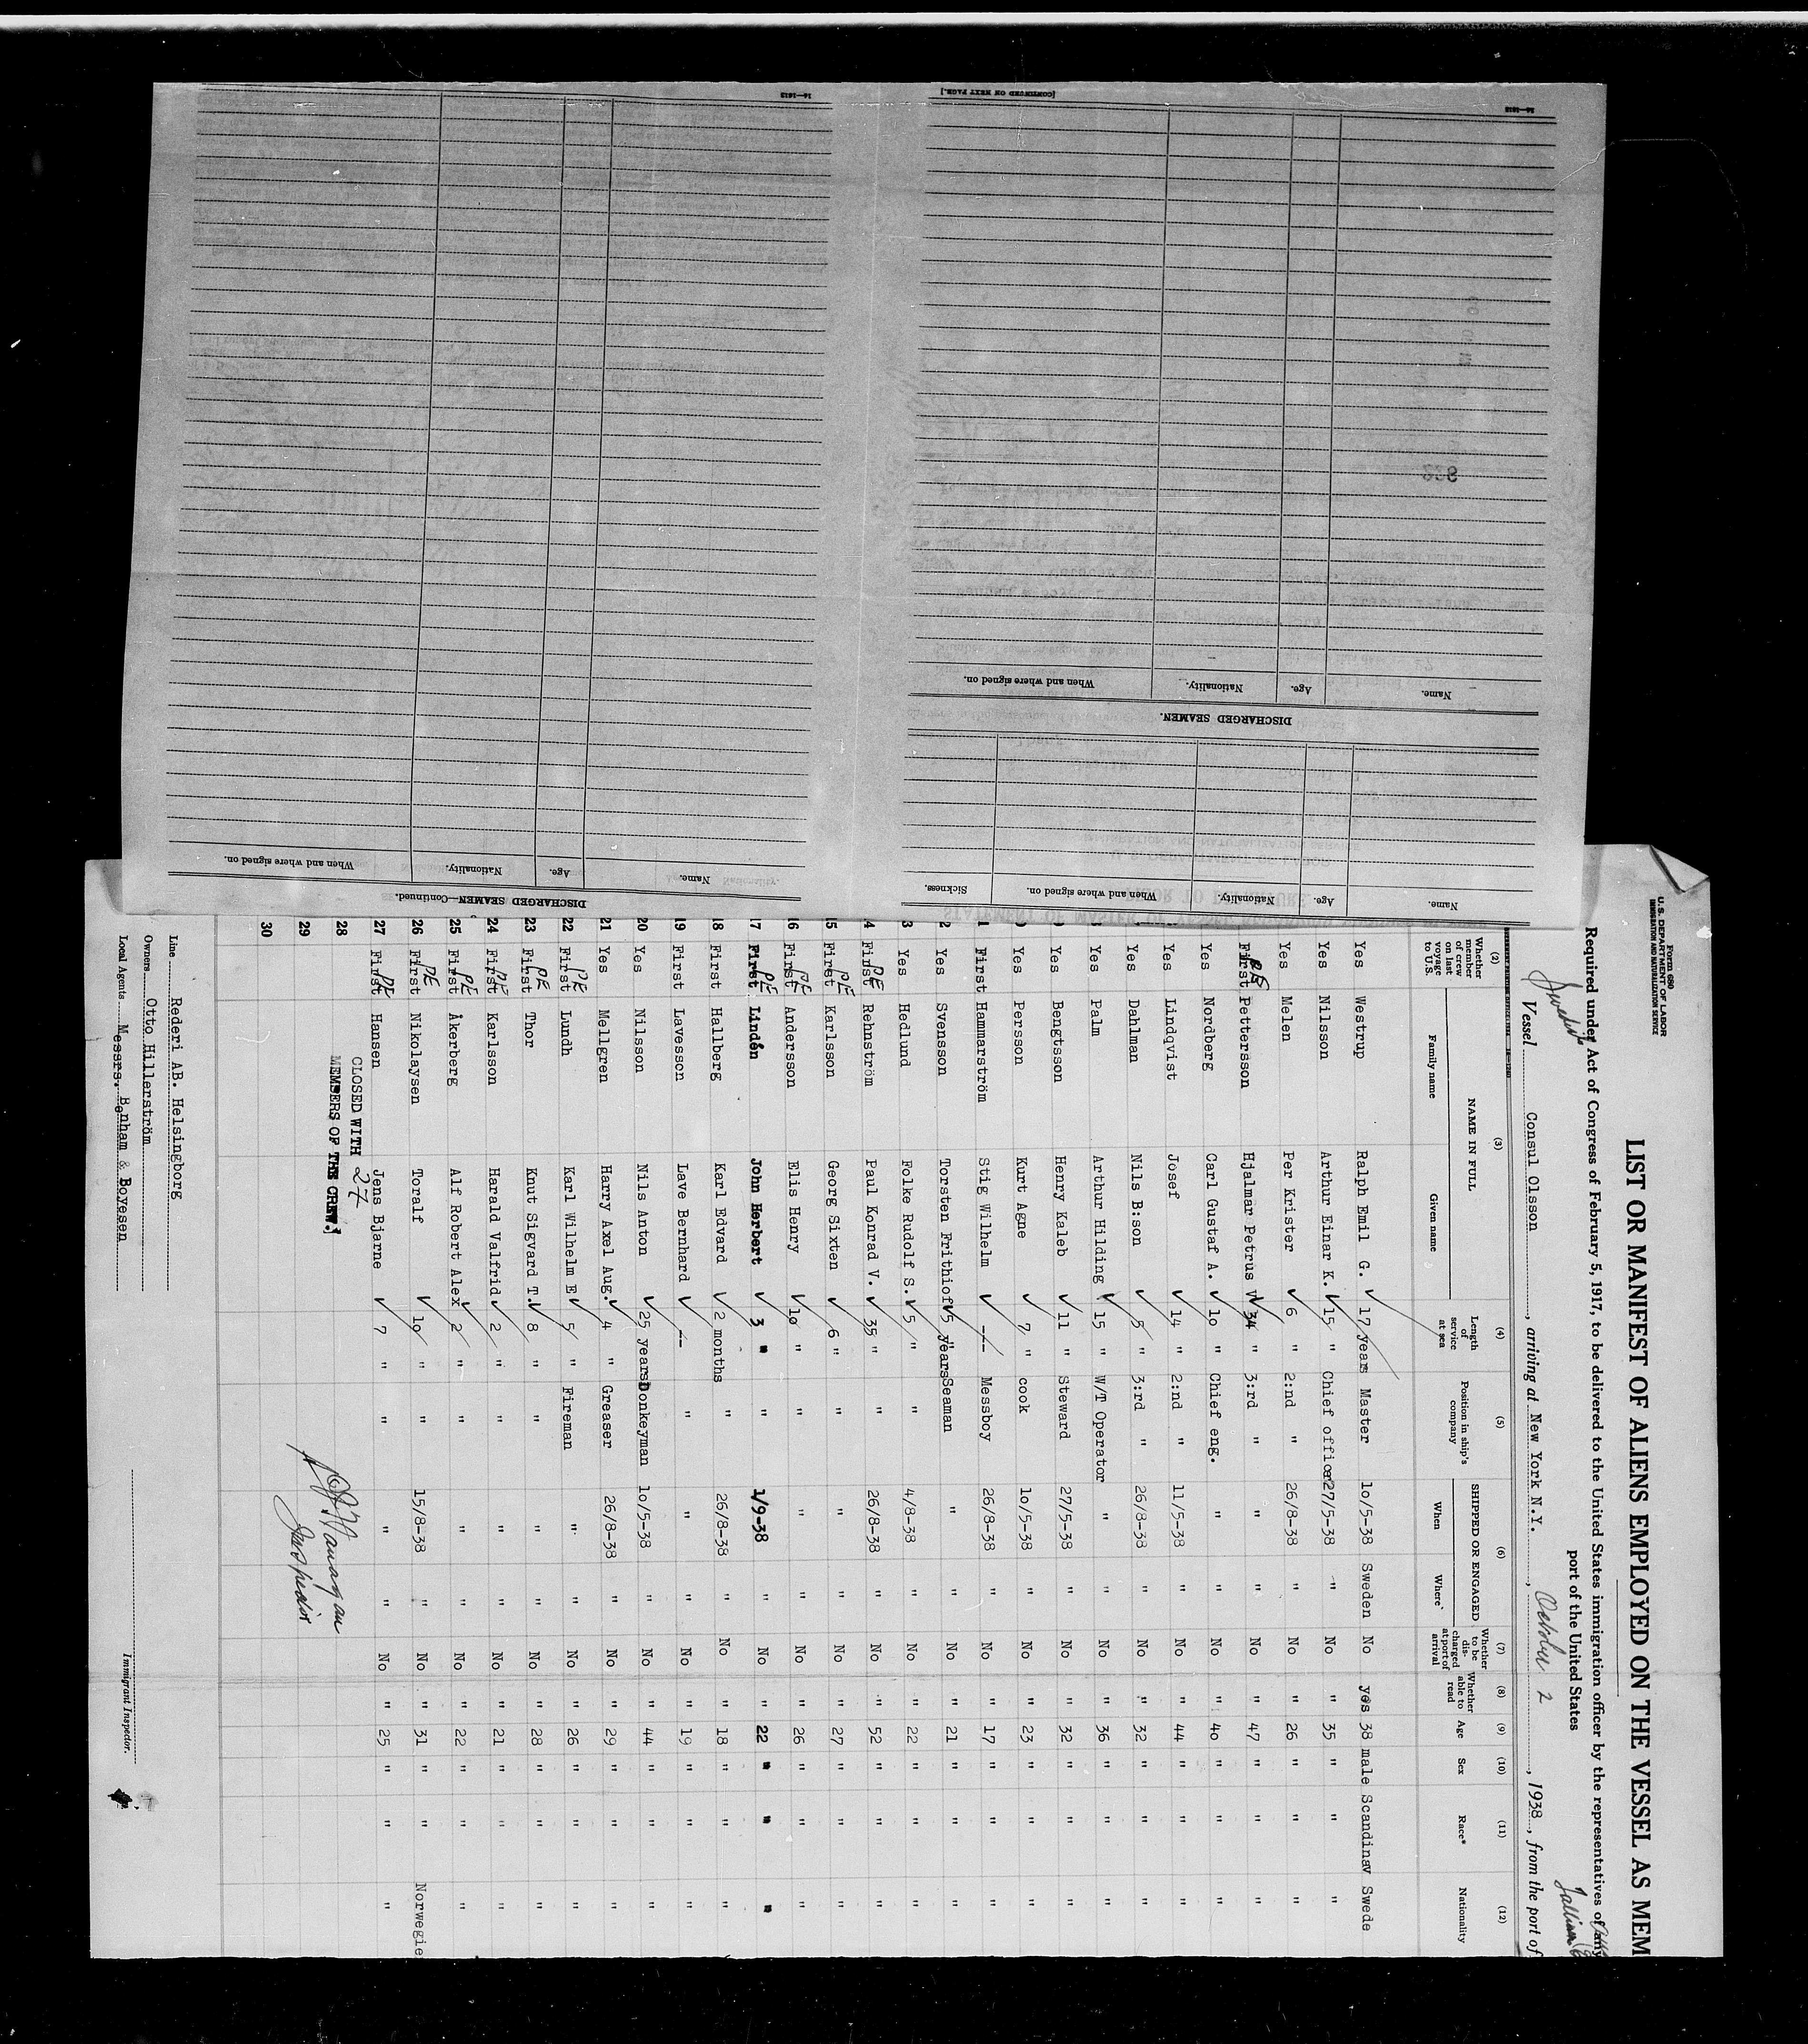 14—1612
[CONTINUED ON NEXT PAGE.]
14—1612
When and where signed on. Nationality. Age. Name.
DISCHARGED SEAMEN.
Sickness. When and where signed on. Nationality. Age. Name.
When and where signed on. Nationality. Age. Name.
DISCHARGED SEAMEN—Continued.
Form 680
U. S. DEPARTMENT OF LABOR
IMMIGRATION AND NATURALIZATION SERVICE
LIST OR MANIFEST OF ALIENS EMPLOYED ON THE VESSEL AS MEM
Required under Act of Congress of February 5, 1917, to be delivered to the United States immigration officer by the representatives of any
port of the United States
Swedish
Vessel Consul Olsson, arriving at New York N.Y., October 2, 1938, from the port of
(2) (3) (4) (5) (6) (7) (8) (9) (10) (11) (12)
Whether member of crew on last voyage to U.S. NAME IN FULL Family name Given name Length of service at sea Position in ship's company SHIPPED OR ENGAGED When Where Whether to be discharged at port of arrival Whether able to read Age Sex Race* Nationality
Yes Westrup Ralph Emil G. 17 years Master 10/5-38 Sweden No yes 38 male Scandinav Swede
Yes Nilsson Arthur Einar K. 15 " Chief officer 27/5-38 " No " 35 " " "
Yes Melen Per Krister 6 " 2:nd " 26/8-38 " No " 26 " " "
First Pettersson Hjalmar Petrus 34 " 3:rd " " " No " 47 " " "
Yes Nordberg Carl Gustaf A. 1o " Chief eng. " " No " 4o " " "
Yes Lindqvist Josef 14 " 2:nd " 11/5-38 " No " 44 " " "
Yes Dahlman Nils B:son 5 " 3:rd " 26/8-38 " No " 32 " " "
Yes Palm Arthur Hilding 15 " W/T Operator " " No " 36 " " "
Yes Bengtsson Henry Kaleb 11 " Steward 27/5-38 " No " 32 " " "
Yes Persson Kurt Agne 7 " cook 1o/5-38 " No " 23 " " "
1 First Hammarström Stig Wilhelm --- Messboy 26/8-38 " No " 17 " " "
2 Yes Svensson Torsten Frithiof 5 years Seaman " " No " 21 " " "
3 Yes Hedlund Folke Rudolf S. 5 " " 4/8-38 " No " 22 " " "
4 First PE Rehnström Paul Konrad V. 35 " " 26/8-38 " No " 52 " " "
5 First PE Karlsson Georg Sixten 6 " " " " No " 27 " " "
16 First PE Andersson Elis Henry 1o " " " " No " 26 " " "
17 First PE Lindén John Herbert 3 " " 1/9-38 " No " 22 " " "
18 First Hallberg Karl Edvard 2 months " 26/8-38 " No " 18 " " "
19 First Lavesson Lave Bernhard -- " " " No " 19 " " "
20 Yes Nilsson Nils Anton 25 years Donkeyman 1o/5-38 " No " 44 " " "
21 Yes Mellgren Harry Axel Aug. 4 " Greaser 26/8-38 " No " 29 " " "
22 First PE Lundh Karl Wilhelm E 5 " Fireman " " No " 26 " " "
23 First PE Thor Knut Sigvard T. 8 " " " " No " 28 " " "
24 First PE Karlsson Harald Valfrid 2 " " " " No " 21 " " "
25 First PE Åkerberg Alf Robert Alex 2 " " " " No " 22 " " "
26 First PE Nikolaysen Toralf 1o " " 15/8-38 " No " 31 " " Norwegie
27 First PE Hansen Jens Bjarne 7 " " " " No " 25 " " "
28
29
30
CLOSED WITH 27
MEMBERS OF THE CREW.
Inspector
Line Rederi AB. Helsingborg
Owners Otto Hillerström
Local Agents Messrs. Benham & Boyesen
Immigrant Inspector.